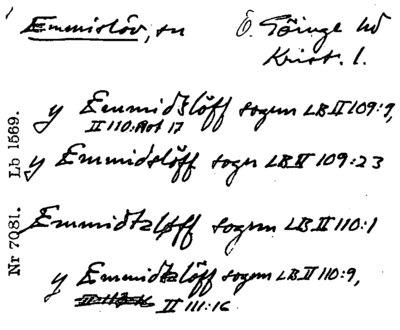 Emmislöv, sn Ö. Göinge hd
Krist. l.
y Emmidslöff sogen LB II 109:9,
II 110: Not 17
y Emmidslöff sogn LB II 109:23
Emmidtzløff sogen LB II 110:1
y Emmidtzlöff sogen LB II 110:9,
II 111:16
Lb 1569.
Nr 7081.